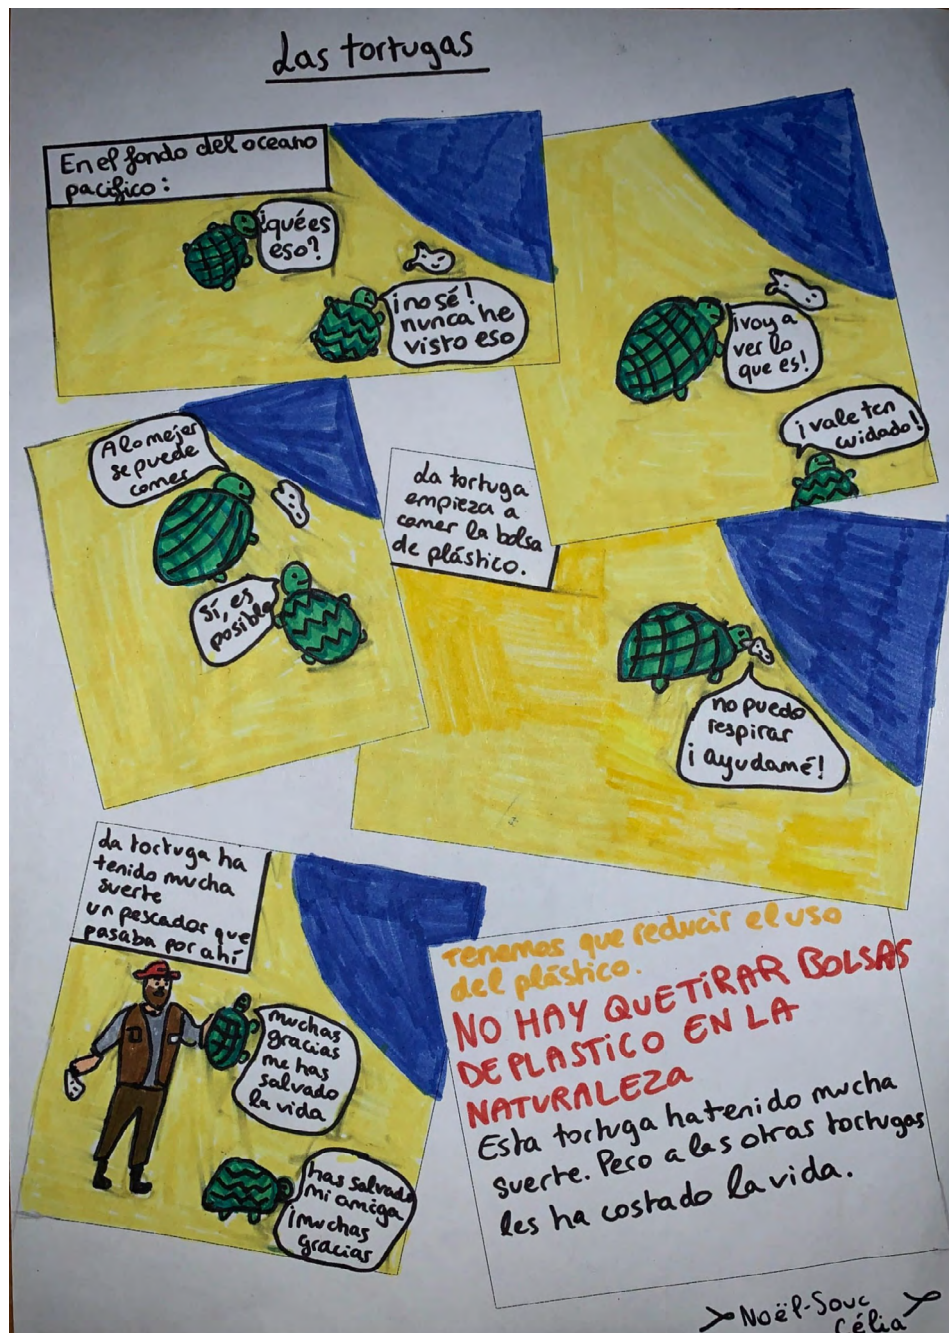 Las tortugas
En el fondo del oceano
pacifico:
¿qué es
eso?
¡no sé!
nunca he
visto eso
¡voy a
ver lo
que es!
¡vale ten
cuidado!
A lo mejor
se puede
comer
Sí, es
posible
La tortuga
empieza a
comer la bolsa
de plástico.
no puedo
respirar
¡Ayudamé!
La tortuga ha
tenido mucha
suerte
un pescador que
pasaba por ahí
muchas
gracias
me has
salvado
la vida
has salvado
mi amiga
¡muchas
gracias
Tenemos que reducir el uso
del plástico.
NO HAY QUE TIRAR BOLSAS
DE PLASTICO EN LA
NATURALEZA
Esta tortuga ha tenido mucha
suerte. Pero a las otras tortugas
les ha costado la vida.
Noël-Souc
Célia